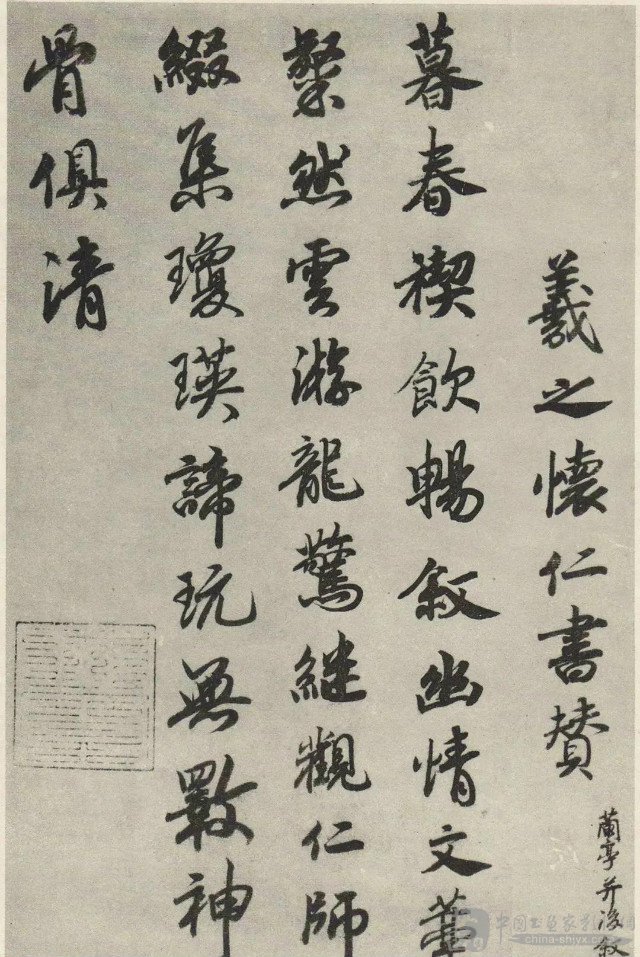 蘭亭并後叙
羲之懷仁書贊
暮春禊飲暢叙幽情文華
粲然雲游龍驚繼觀仁師
綴集瓊瑛諦玩無斁神
骨俱清
中国书画家
china-shjyx.com